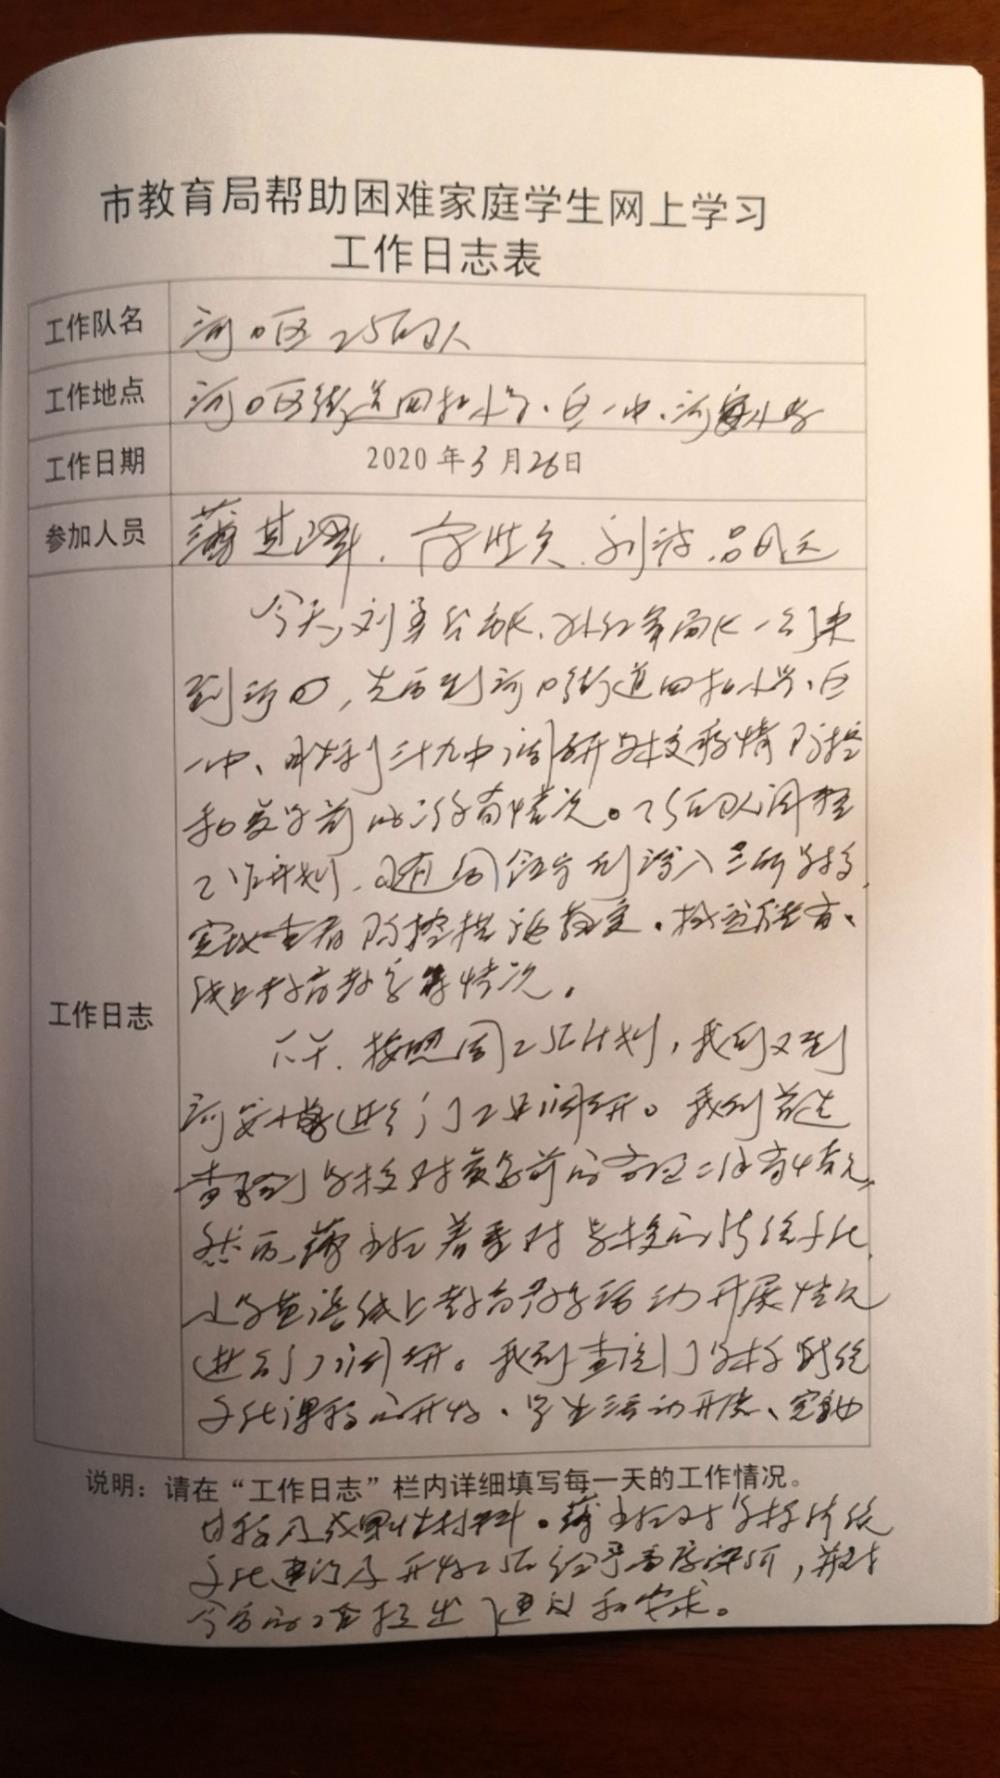 市教育局帮助困难家庭学生网上学习
工作日志表
工作队名 河口区工作队
工作地点 河口区街道四扣小学、区一中、河安小学
工作日期 2020年3月26日
参加人员 薄其
今天,刘 局长一行来
到河口,先后到河口街道四扣小学、区
一中、胜利三十九中调研学校疫情防控
和复学前的准备情况。工作队调整
工作计划,随同 分别深入三所学校,
实地查看防控措施落实、物资储备、
线上教育教学等情况。
下午,按照周工作计划,我们又到
河安小学进行了工作调研。我们首先
查看到学校对复学前的各项工作准备情况,
然后,薄主任着重对学校的传统文化、
小学英语线上教育教学活动开展情况
进行了调研。我们查阅了学校传统
文化课程的开设、学生活动开展、实施
工作日志
说明:请在“工作日志”栏内详细填写每一天的工作情况。
过程及成果性材料。薄主任对学校传统
文化建设及开展工作给予高度评价,并对
今后的工作提出了建议和要求。